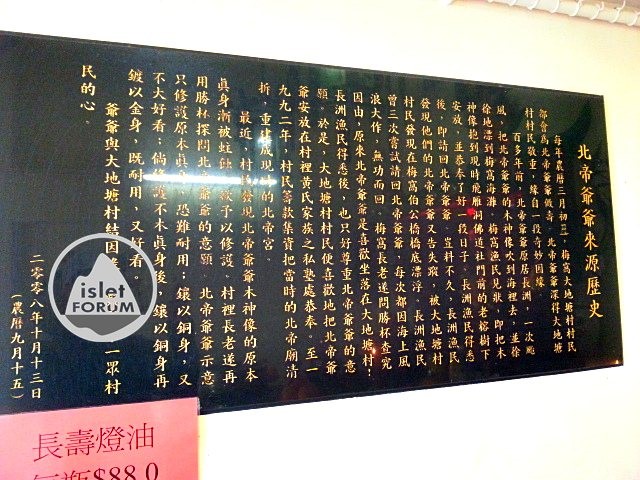 北帝爺爺來源歷史
每年農曆三月初三，梅窩大地塘村村民
都會為北帝爺爺做壽。北帝爺爺深得大地塘
村村民敬重，緣自一段奇妙因緣。
百多年前，北帝爺爺原居長洲，一次颱
風，把北帝爺爺的木神像吹到海裡去，並徐
徐地漂到梅窩海灘。梅窩漁民見狀，即把木
神像抱到現時飛雁洞佛道社門前的老榕樹下
安放，並恭奉了好一段日子。長洲漁民得悉
後，即請回北帝爺爺。豈料不久，長洲漁民
發現他們的北帝爺爺又告失蹤，被大地塘村
村民發現在梅窩伯公橋橋底漂浮。長洲漁民
曾三次嘗試請回北帝爺爺，每次都因海上風
浪大作，無功而回。梅窩長老遂問勝杯查究
因由，原來北帝爺爺是喜歡坐落在大地塘村；
長洲漁民得悉後，也只好尊重北帝爺爺的意
願。於是，大地塘村村民便喜歡地把北帝爺
爺安放在村裡黃氏家族之私塾處恭奉。至一
九九二年，村民籌款集資把當時的北帝廟清
拆，重建成現時的北帝宮。
最近，村民發現北帝爺爺木神像的原本
真身漸被蛀蝕，欲予以修護。村裡長老遂再
用勝杯探問北帝爺爺的意願。北帝爺爺示意
只修護原本真身，恐難耐用；鑲以銅身，又
不大好看；倘修護木真身後，鑲以銅身再
鍍以金身，既耐用，又好看。
爺爺與大地塘村結因 一眾村
民的心。
二零零八年十月十三日
（農曆九月十五）
islet
FORUM
長壽燈油
每瓶$88.0